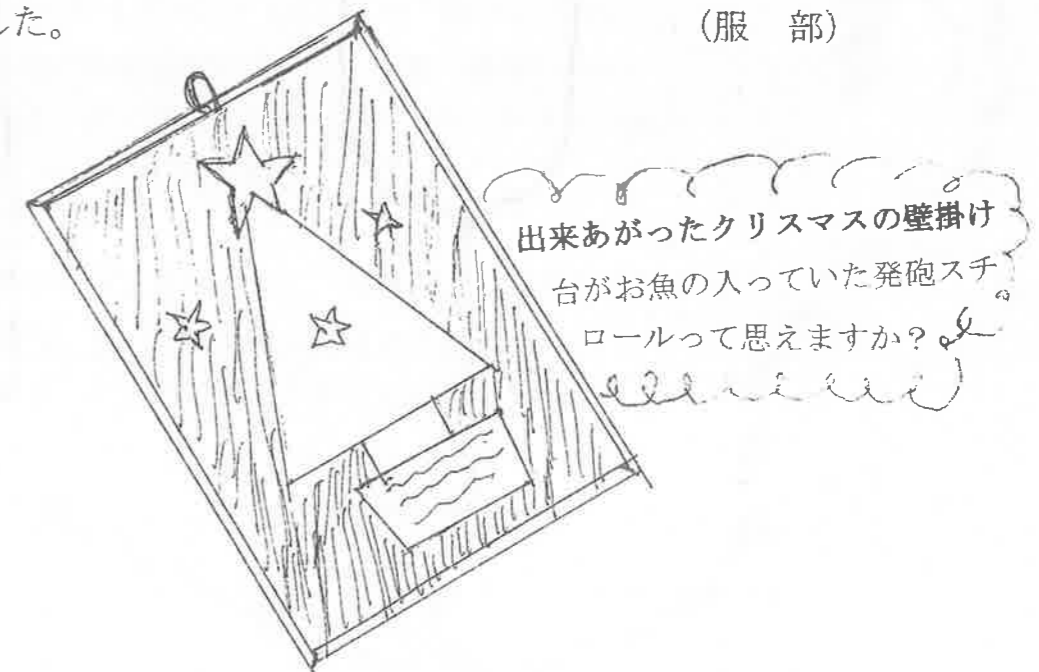 した。
(服 部)
出来あがったクリスマスの壁掛け
台がお魚の入っていた発砲スチ
ロールって思えますか?